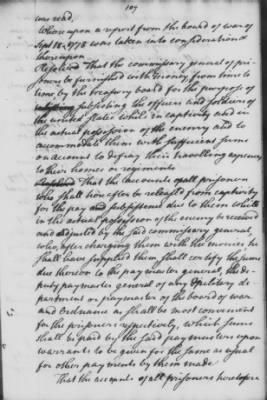 107
was read,
Whereupon a report from the board of war of
Sept 18. 1778 was taken into consideration &
thereupon
Resolved That the commissary general of pri-
soners be furnished with money, from time to
time, by the treasury board for the purpose of
subsisting the officers and soldiers of
the united states while in captivity and in
the actual possession of the enemy and to
accommodate them with sufficient sums
on account to defray their travelling expences
to their homes or regiments
That the accounts of all prisoners
who shall be released from captivity
for the pay and subsistence due to them while
in the actual possession of the enemy be received
and adjusted by the said commissary general,
who, after charging them with the monies he
shall have supplied them shall certify the sums
due thereon to the paymaster general, the de-
puty paymaster general of any military de-
partment or paymaster of the board of war
and ordnance as shall be most convenient
for the prisoners respectively, which sums
shall be paid by the said paymasters upon
warrants to be given for the same as usual
for other payments by them made
That the accounts of all prisoners heretofore